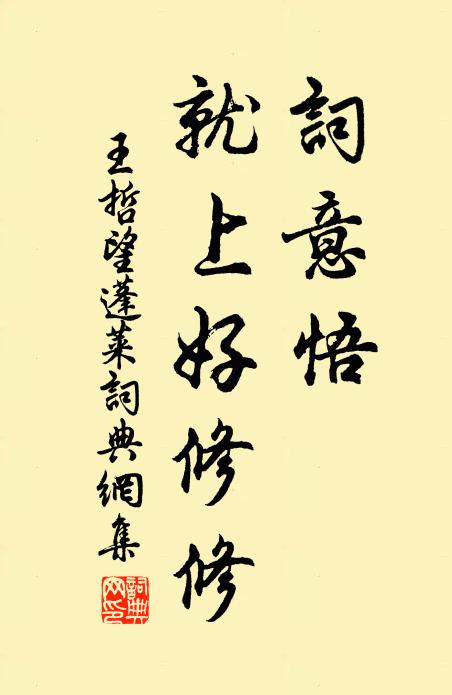 詞意悟
就上好修修
王哲望蓬莱詞典網集
詞典
网印